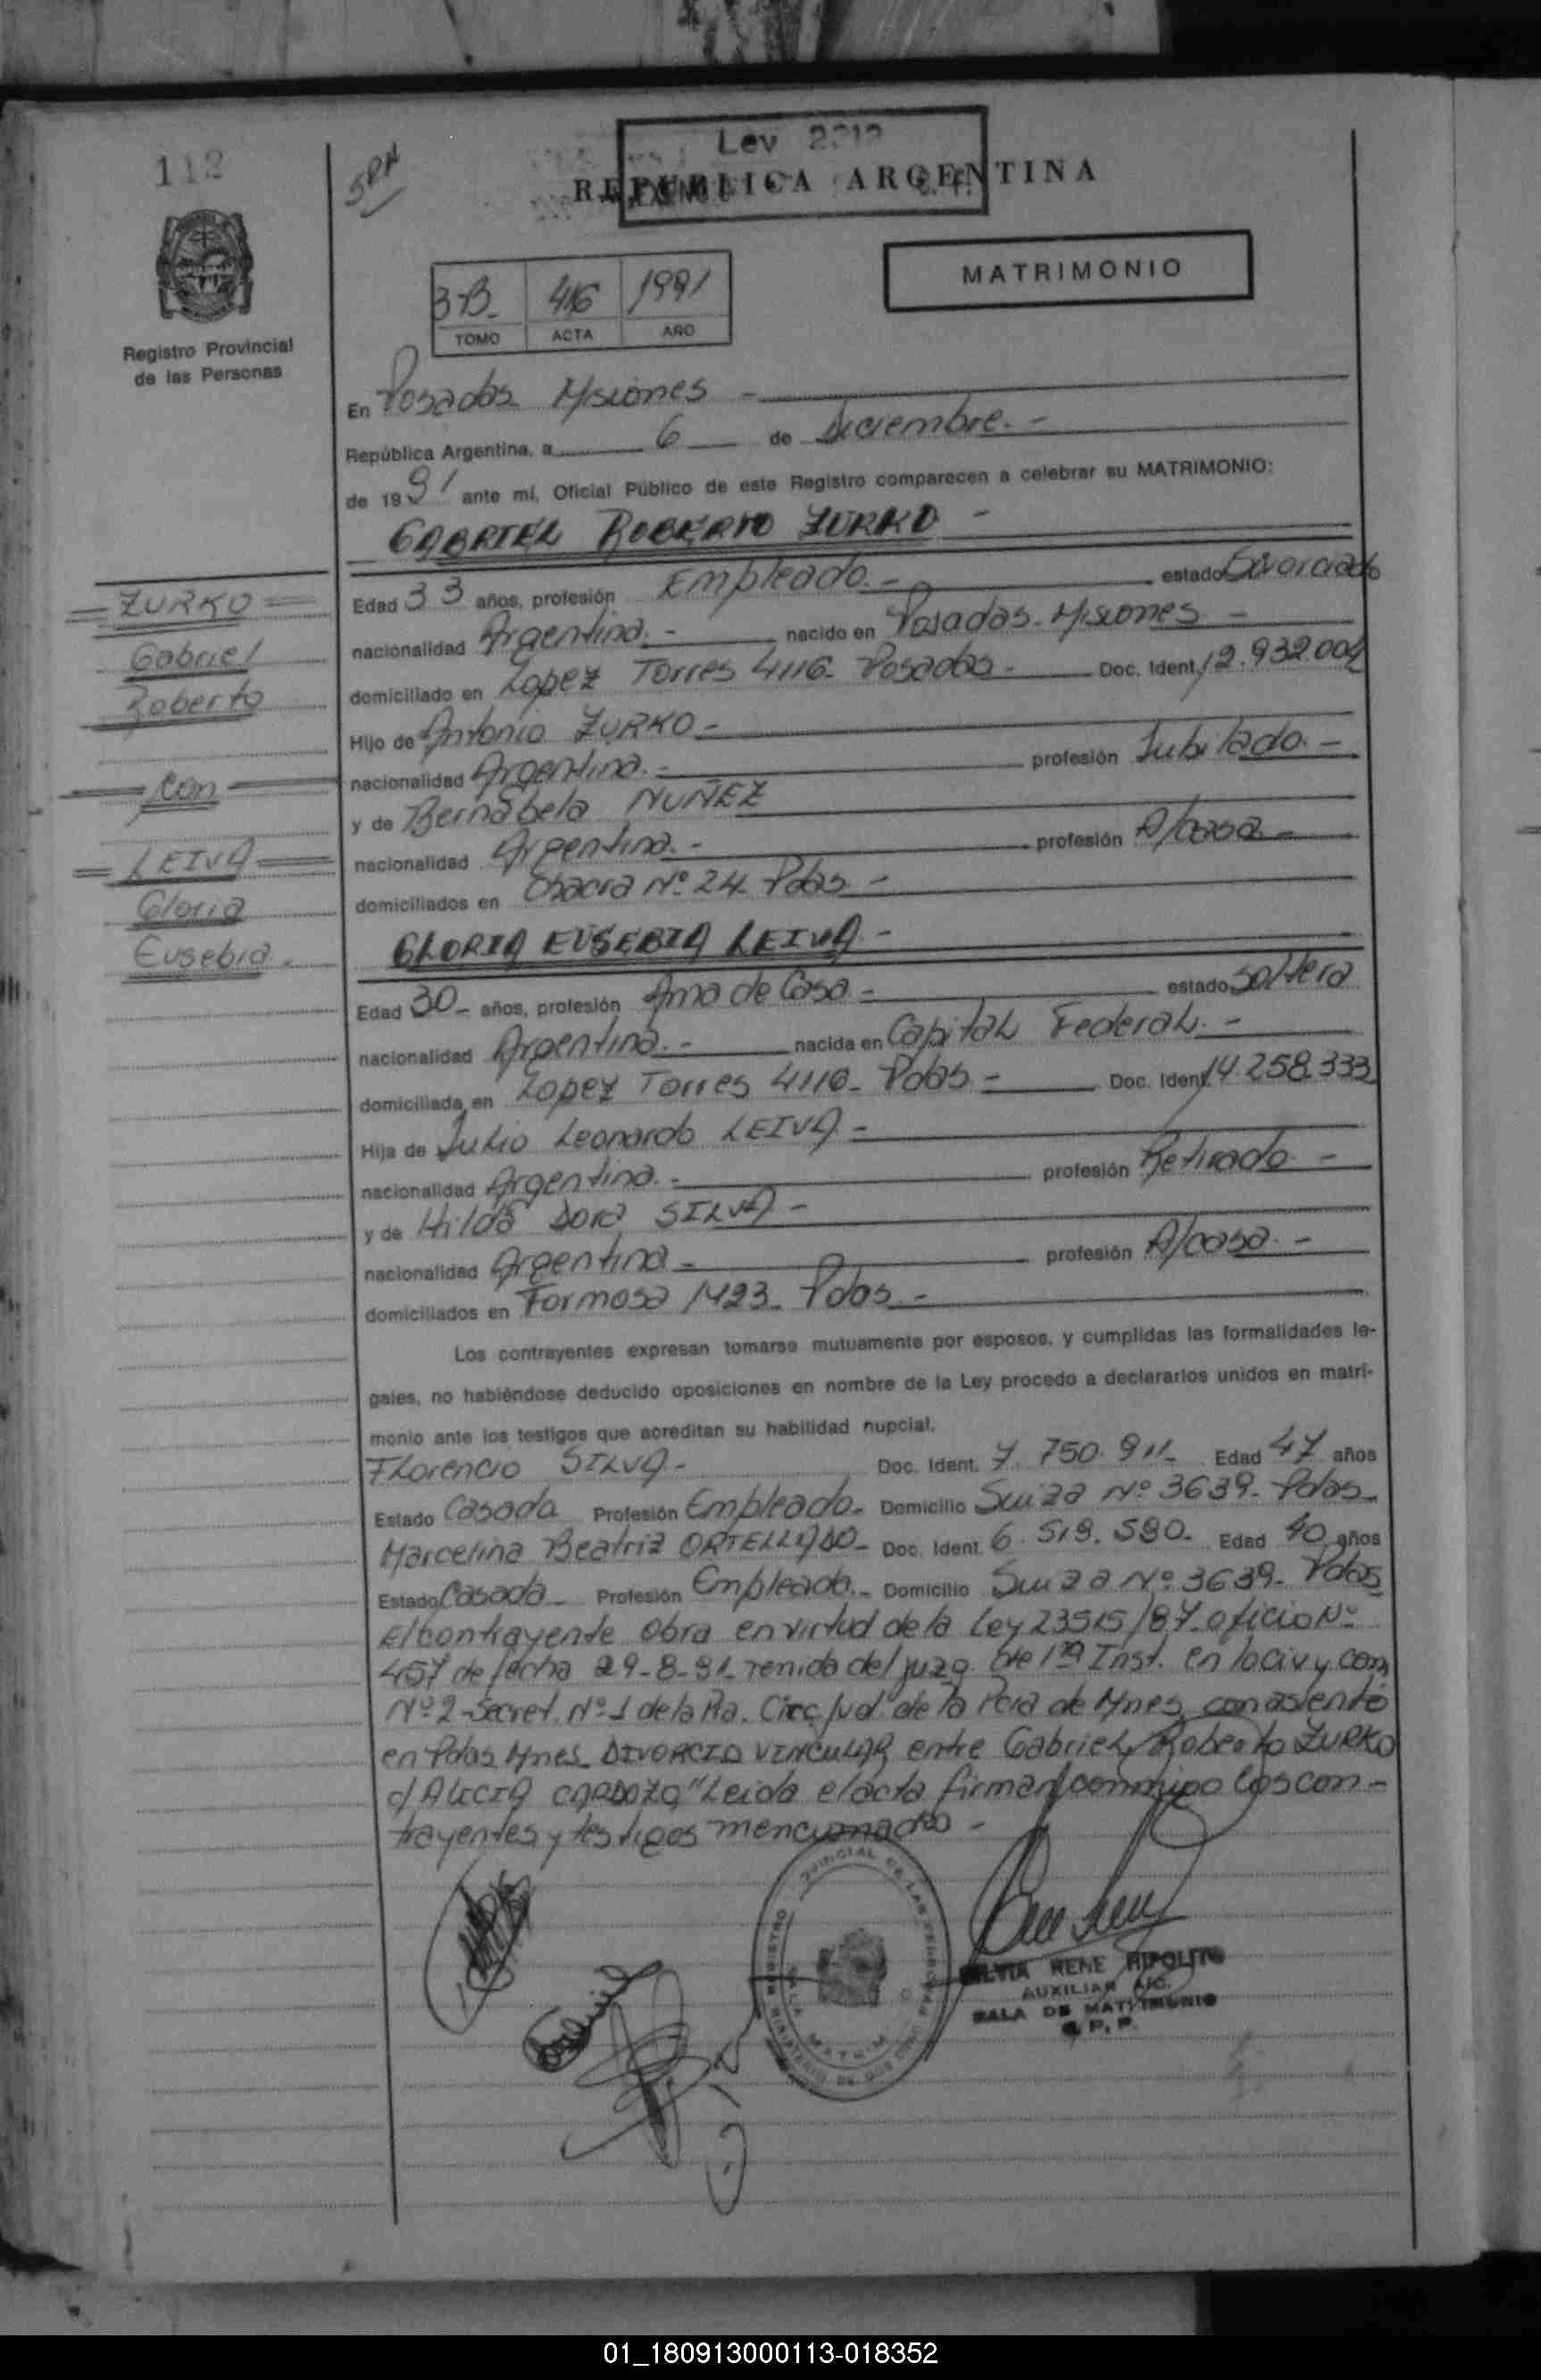 112
SRN
Ley 2212
REPUBLICA ARGENTINA
3-B- 416 1991
TOMO ACTA AÑO
MATRIMONIO
Registro Provincial
de las Personas
En Posadas Misiones -
República Argentina, a 6 de Diciembre. -
de 1991 ante mí, Oficial Público de este Registro comparecen a celebrar su MATRIMONIO:
GABRIEL ROBERTO ZURKO -
ZURKO
Gabriel
Roberto
con
LEIVA
Gloria
Eusebia.
Edad 33 años, profesión Empleado. - estado Divorciado
nacionalidad Argentina. - nacido en Posadas. Misiones -
domiciliado en Lopez Torres 4116- Posadas - Doc. Ident. 12.932.004
Hijo de Antonio ZURKO -
nacionalidad Argentina. - profesión Jubilado. -
y de Bernabela NUÑEZ
nacionalidad Argentina. - profesión A/casa -
domiciliados en Chacra Nº 24 Pdas -
GLORIA EUSEBIA LEIVA -
Edad 30- años, profesión Ama de Casa - estado Soltera
nacionalidad Argentina. - nacida en Capital Federal. -
domiciliada en Lopez Torres 4116- Pdas - Doc. Ident. 14.258.333
Hija de Julio Leonardo LEIVA -
nacionalidad Argentina. - profesión Retirado -
y de Hilda Dora SILVA -
nacionalidad Argentina - profesión A/casa. -
domiciliados en Formosa 1423- Pdas. -
Los contrayentes expresan tomarse mutuamente por esposos, y cumplidas las formalidades le-
gales, no habiéndose deducido oposiciones en nombre de la Ley procedo a declararlos unidos en matri-
monio ante los testigos que acreditan su habilidad nupcial.
Florencio SILVA - Doc. Ident. 7.750.911- Edad 47 años
Estado Casado Profesión Empleado- Domicilio Suiza Nº 3639- Pdas-
Marcelina Beatriz ORTELLADO- Doc. Ident. 6.519.590- Edad 40 años
Estado Casada- Profesión Empleada.- Domicilio Suiza Nº 3639- Pdas
El contrayente obra en virtud de la Ley 23515/87- oficio Nº
457 de fecha 29-8-91- venida del Juzg. de 1ra Inst. en lo civ y com
Nº 2- Secret. Nº 1 de la Pra. Circ Jud. de la Pcia de Mnes con asiento
en Pdas Mnes. DIVORCIO VINCULAR entre Gabriel Roberto ZURKO
c/ ALICIA CARDOZO" Leida el acta firman conmigo los con-
trayentes y testigos mencionados -
REGISTRO PROVINCIAL DE LAS PERSONAS
SILVIA RENE HIPOLITO
AUXILIAR
SALA DE MATRIMONIO
R. P. P.
01_180913000113-018352